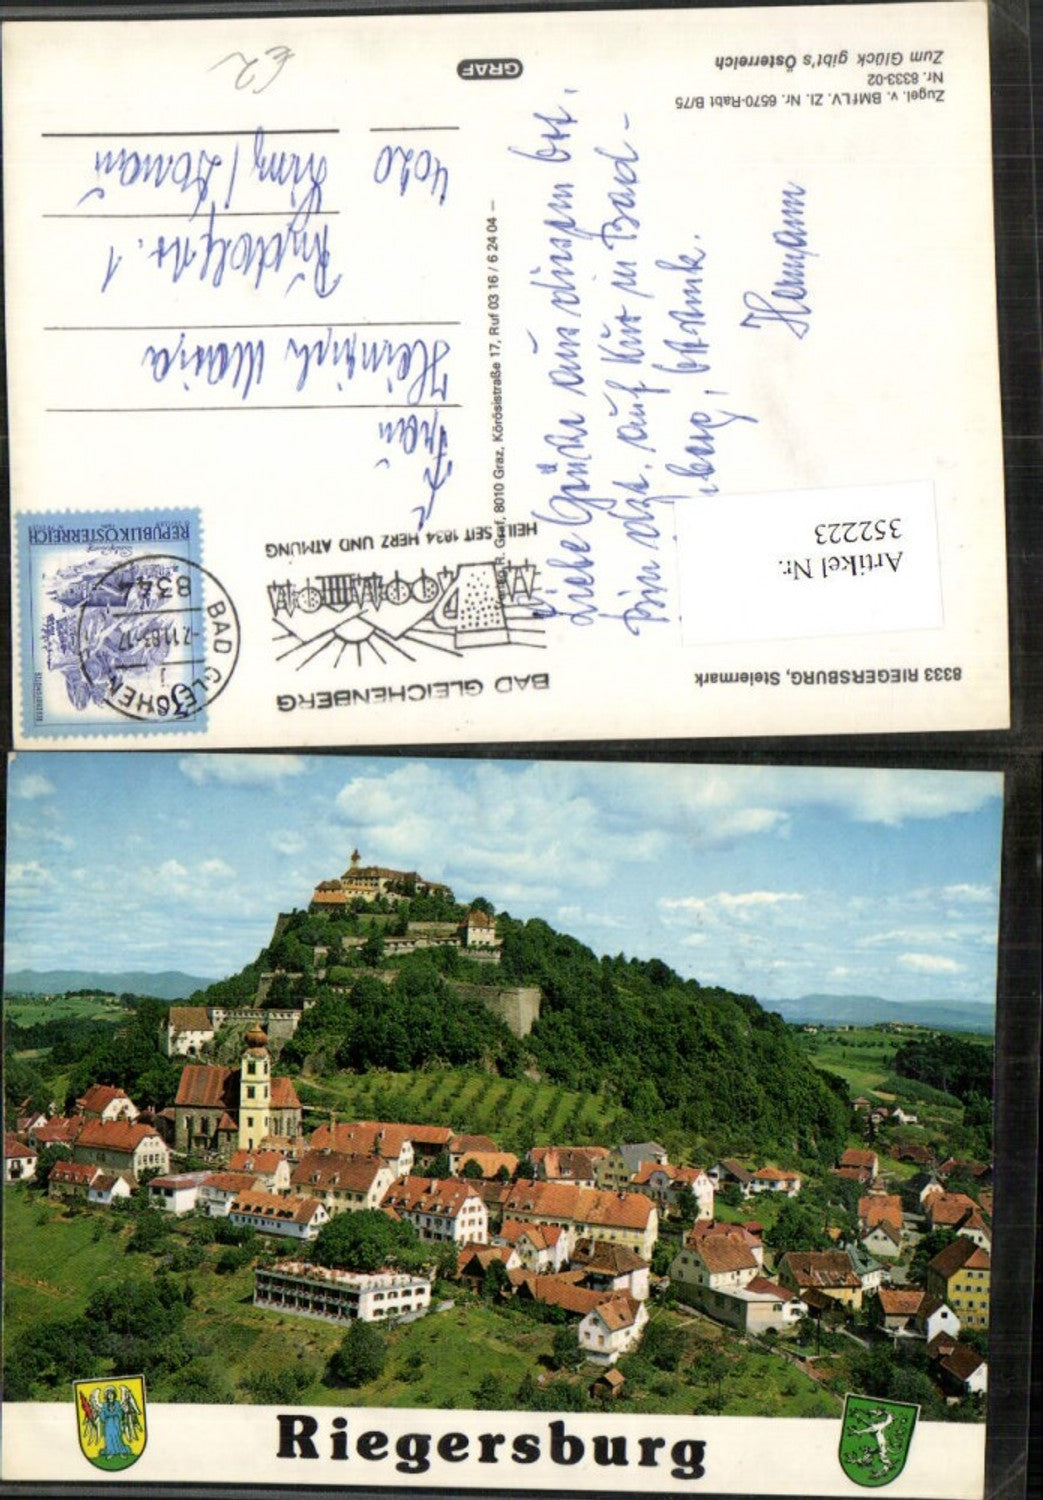 Zugel. v. BMfLV. Zl. Nr. 6570-Rabt B/75
Nr. 8333-02
Zum Glück gibt's Österreich
GRAF
€2
8333 RIEGERSBURG, Steiermark
Artikel Nr.
352223
Liebe Grüße aus diesem Ort.
bin dzt. auf Kur in Bad-
Hermann
R. Graf, 8010 Graz, Körösistraße 17, Ruf 03 16 / 6 24 04 —
BAD GLEICHENBERG
HEILT SEIT 1834 HERZ UND ATMUNG
REPUBLIK ÖSTERREICH
8344
BAD GLEICHEN
-7.11.83-17
Frau
Heinrich Maria
Rudolfstr. 1
4020
Linz/Donau
Riegersburg